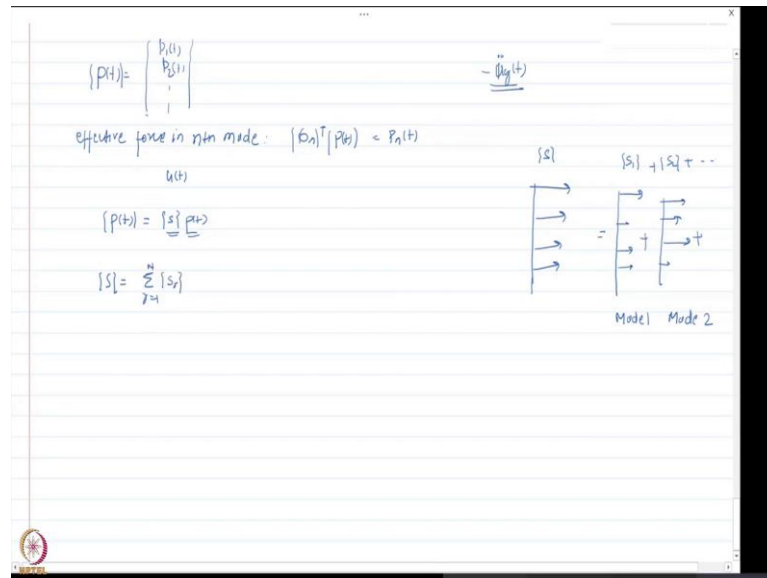 {p(t)} = { p₁(t)
p₂(t)
- üg(t)
effective force in nth mode: {φn}ᵀ{p(t)} = Pn(t)
u(t)
{p(t)} = {s} p(t)
{s} = Σ {sr}
N
r=1
{s} {s₁} + {s₂} + ...
= + +
Mode 1 Mode 2
NPTEL